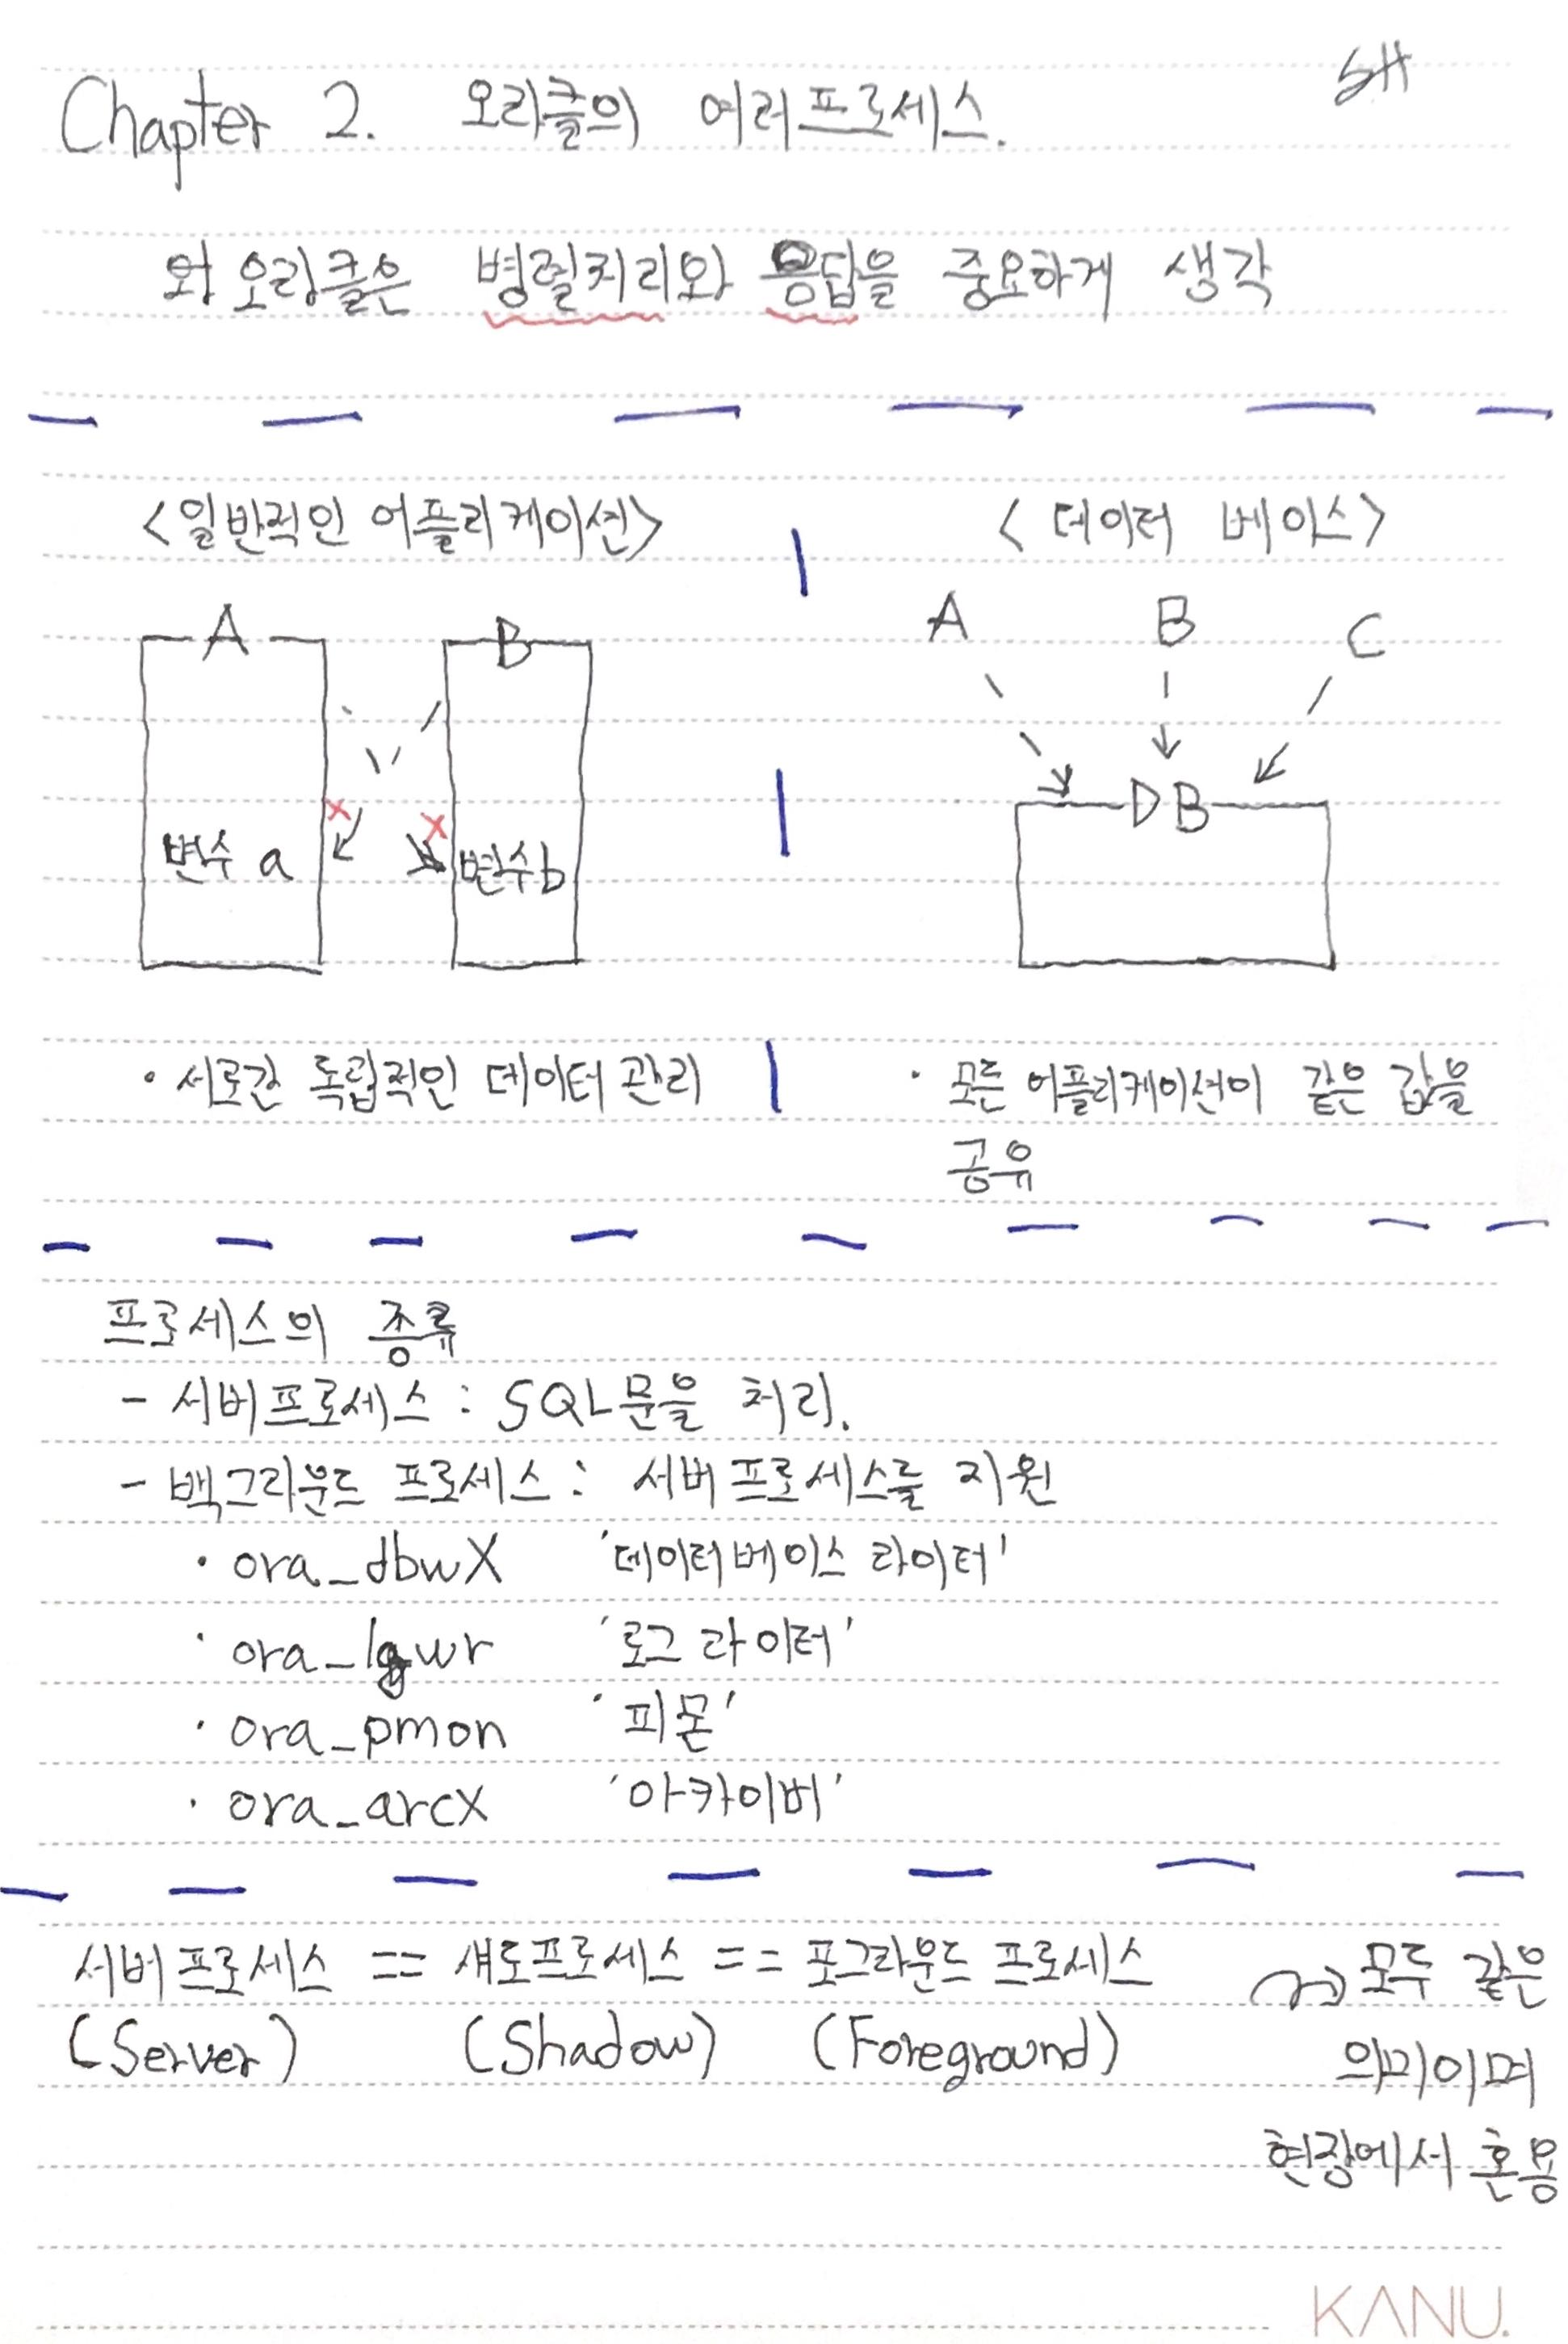 Chapter 2. 오라클의 여러프로세스.
SH
오라클은 병렬처리와 응답을 중요하게 생각
<일반적인 어플리케이션>
<데이터 베이스>
A
B
변수 a
변수 b
A
B
C
DB
· 서로간 독립적인 데이터 관리
· 모든 어플리케이션이 같은 값을
공유
프로세스의 종류
- 서버프로세스 : SQL문을 처리.
- 백그라운드 프로세스 : 서버프로세스를 지원
· ora_dbwX '데이터베이스 라이터'
· ora_lgwr '로그 라이터'
· ora_pmon '피몬'
· ora_arcX '아카이버'
서버프로세스 == 섀도프로세스 == 포그라운드 프로세스
(Server) (Shadow) (Foreground)
모두 같은
의미이며
현장에서 혼용
KANU.